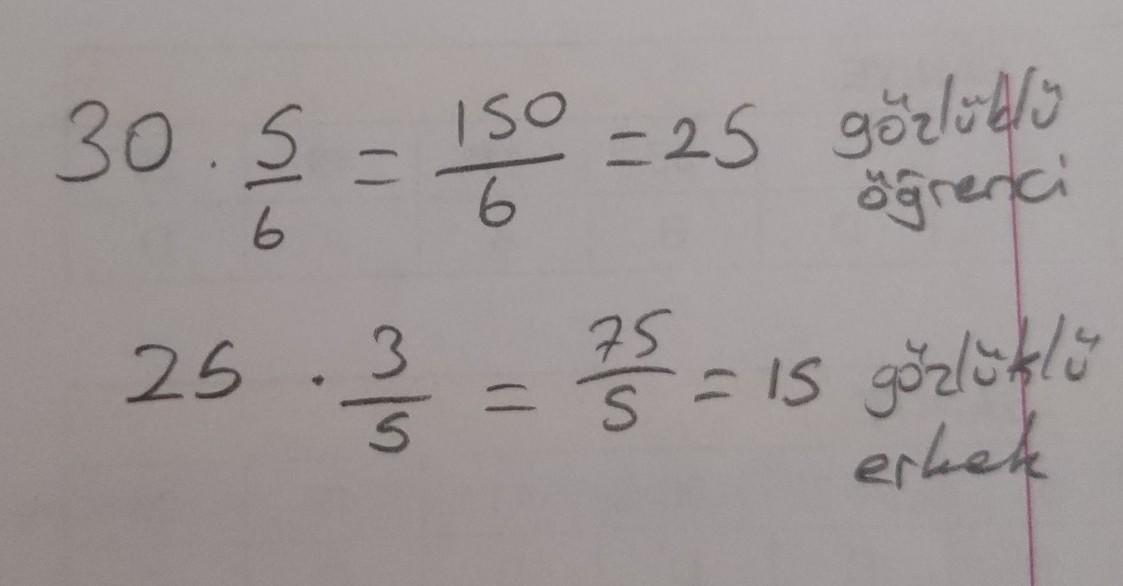 30 · 5/6 = 150/6 = 25 gözlüklü
öğrenci
25 · 3/5 = 75/5 = 15 gözlüklü
erkek